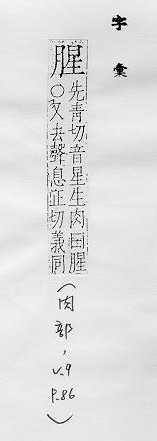 字彙
腥
先青切音星生肉曰腥
○又去聲息正切義同
(肉部,v.9
P.86)